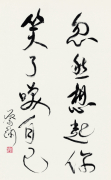 忽然想起你
笑了笑自己